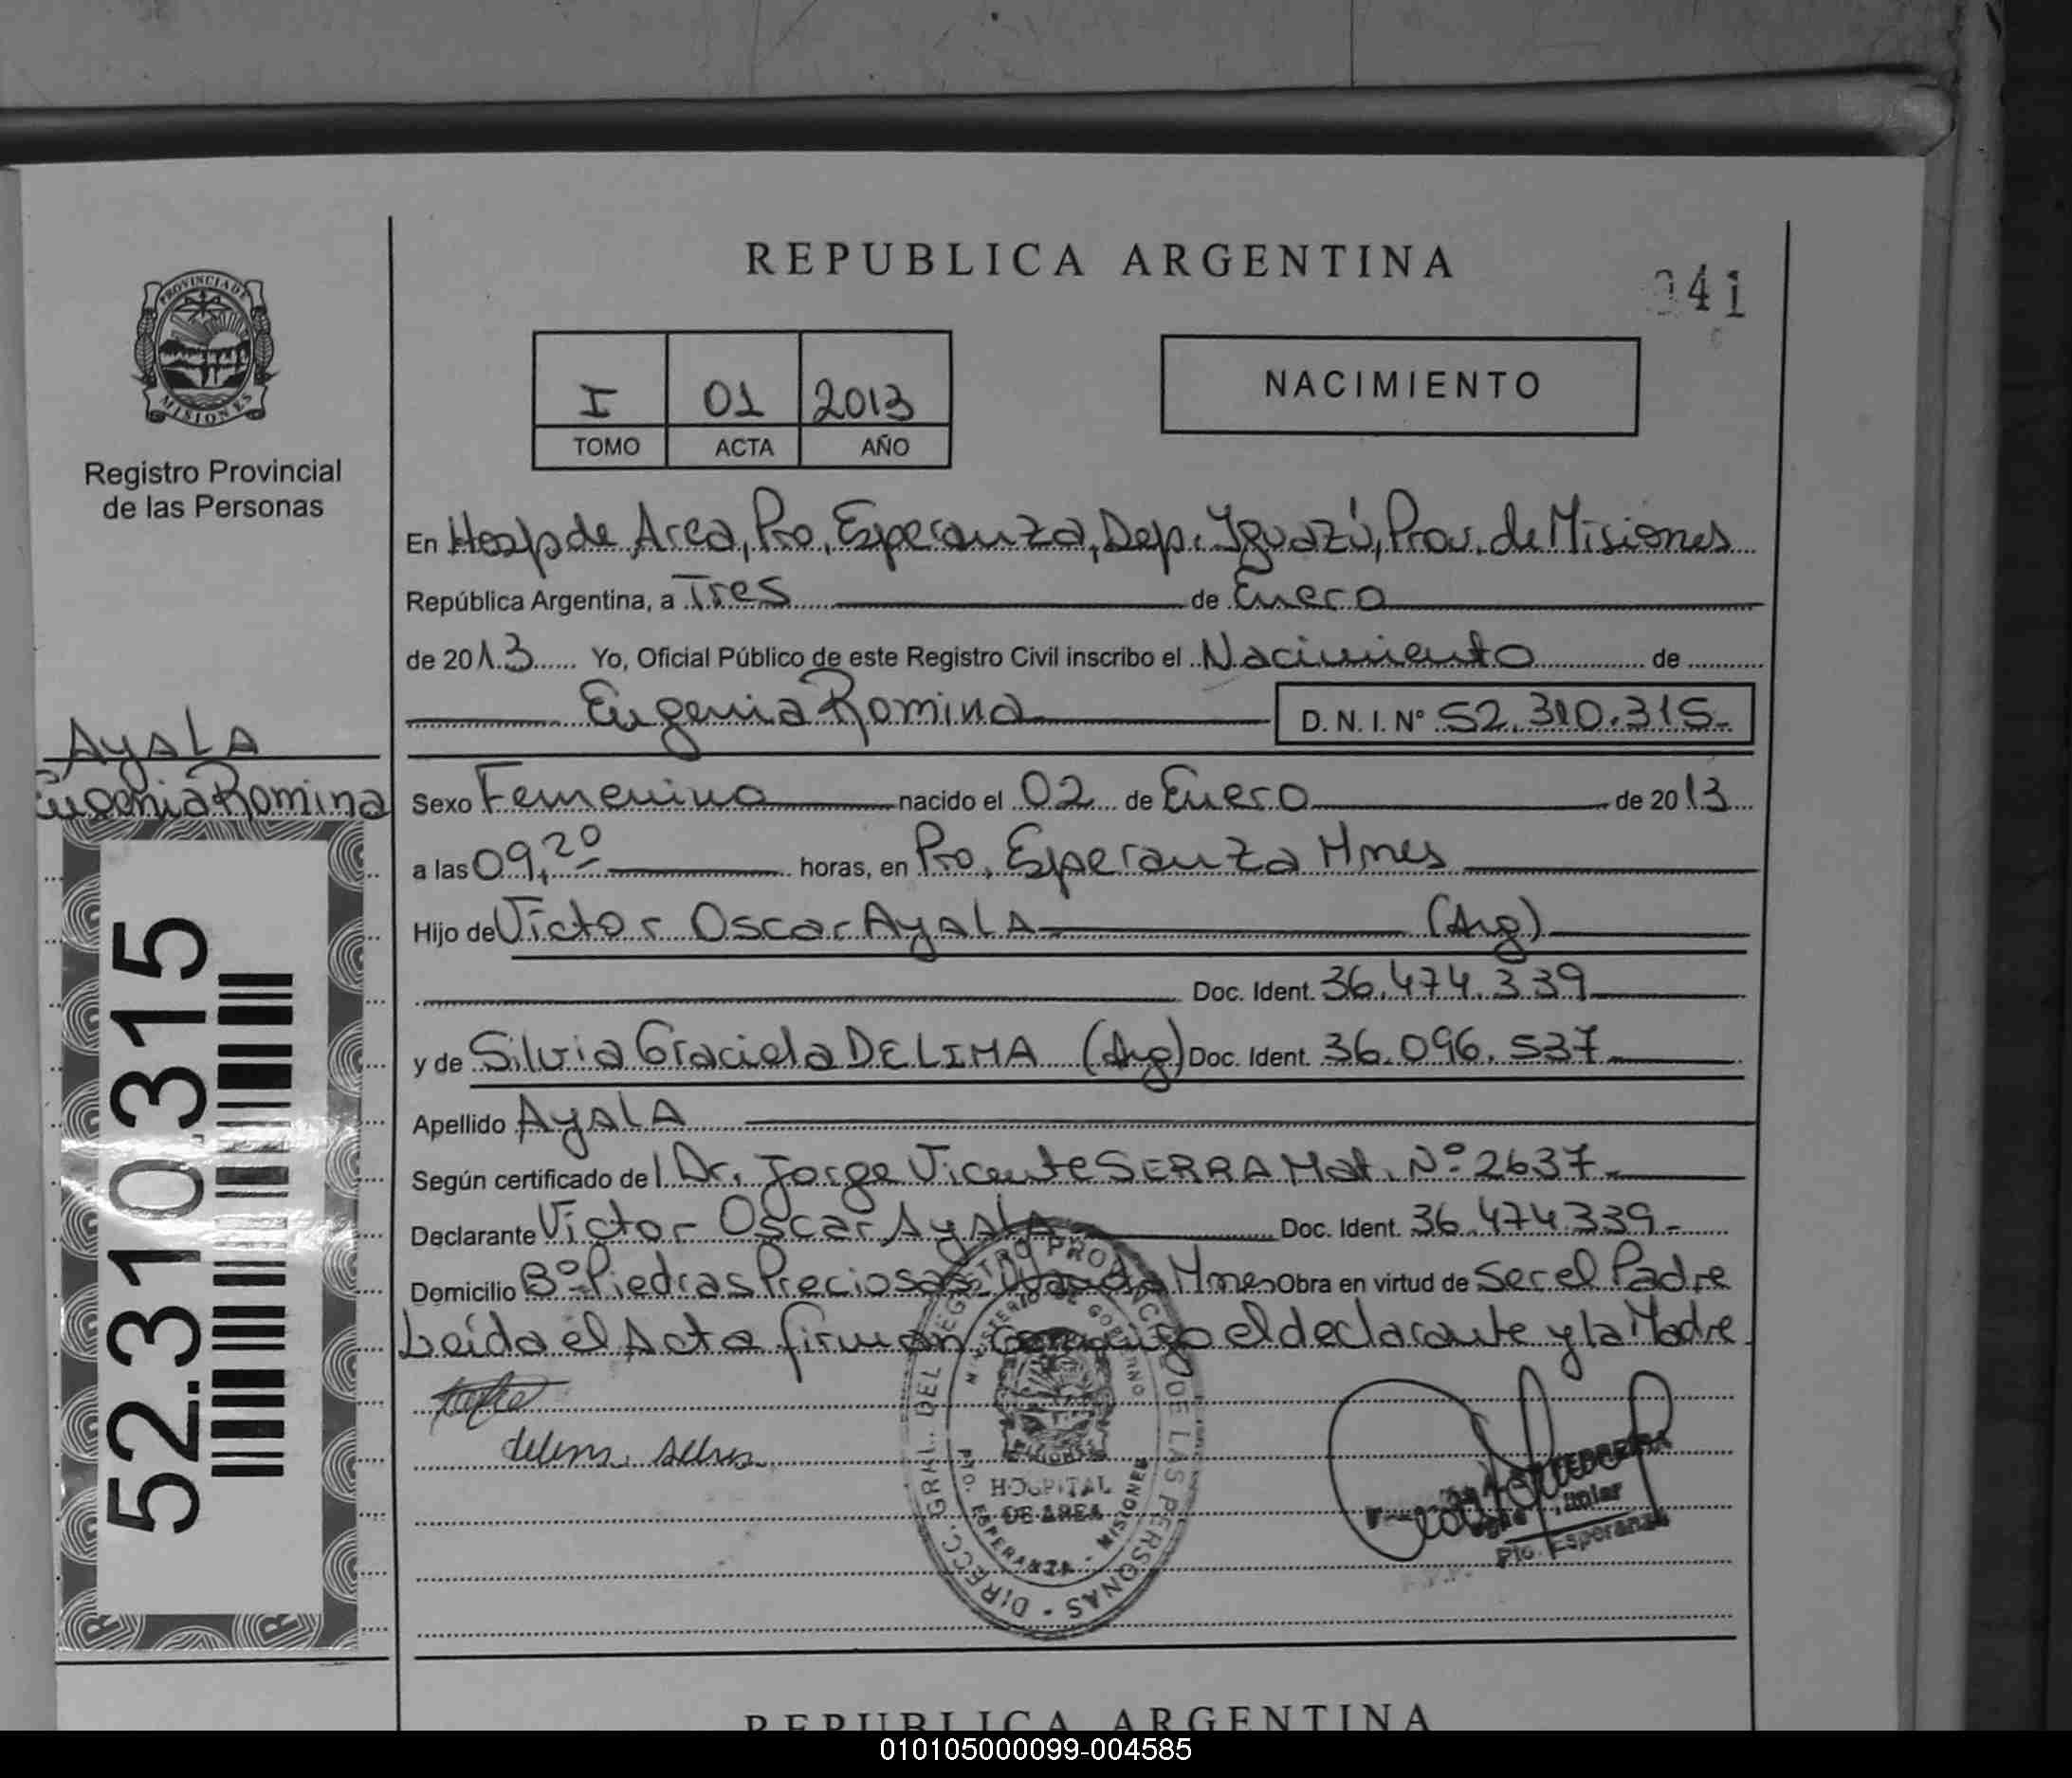 REPUBLICA ARGENTINA
041
PROVINCIA DE
MISIONES
Registro Provincial
de las Personas
I 01 2013
TOMO ACTA AÑO
NACIMIENTO
En Hosp de Area, Pto, Esperanza, Dep. Iguazú, Prov. de Misiones
República Argentina, a Tres de Enero
de 2013 Yo, Oficial Público de este Registro Civil inscribo el Nacimiento de
Eugenia Romina D. N. I. Nº 52.310.315-
Ayala
Eugenia Romina
Sexo Femenino nacido el 02 de Enero de 2013
a las 09,20 horas, en Pto, Esperanza Mnes
Hijo de Victor Oscar Ayala (Arg)
Doc. Ident. 36.474.339
y de Silvia Graciela DE LIMA (Arg) Doc. Ident. 36.096.537
Apellido Ayala
Según certificado del Dr. Jorge Vicente SERRA Mat. Nº 2637-
Declarante Victor Oscar Ayala Doc. Ident. 36.474.339-
Domicilio Bº Piedras Preciosas Wanda Mnes Obra en virtud de Ser el Padre
Leída el Acta firman conmigo el declarante y la Madre
52.310.315
DIRECC. GRAL. DEL REGISTRO PROVINCIAL DE LAS PERSONAS -
MINISTERIO DE GOBIERNO
MISIONES
HOSPITAL
DE AREA
PTO. ESPERANZA - MISIONES
Pto. Esperanza
REPUBLICA ARGENTINA
010105000099-004585